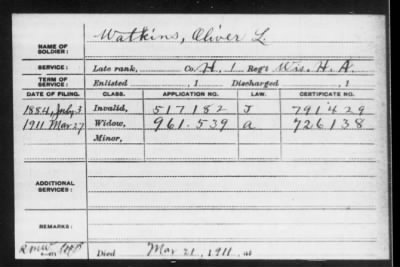 NAME OF SOLDIER: Watkins, Oliver L.
SERVICE: Late rank, Co. H, 1 Reg't Wis. H. A.
TERM OF SERVICE: Enlisted , 1 Discharged , 1
DATE OF FILING. CLASS. APPLICATION NO. LAW. CERTIFICATE NO.
1884, July 3 Invalid, 517182 J 791429
1911 Mar 27 Widow, 961.539 a 726138
Minor,
ADDITIONAL SERVICES:
REMARKS:
Died Mar 21, 1911, at